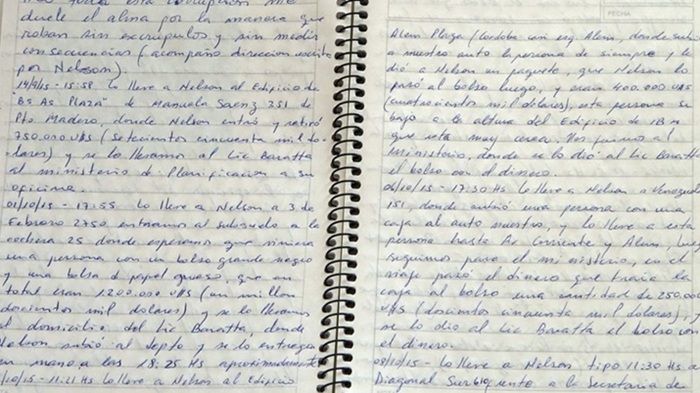 esta corrupción me
duele el alma por la manera que
roban sin escrúpulos y sin medir
consecuencias (acompaño direccion escrita
por Nelson).
14/9/15 - 15:58 Lo lleve a Nelson al Edificio de
BS AS PLAZA" de Manuela Saenz 351 de
Pto Madero, donde Nelson entró y retiró
750.000 U$S (setecientos cincuenta mil do-
lares) y se lo llevamos al Lic Baratta
al ministerio de Planificacion a su
oficina.
01/10/15 - 17:55 Lo lleve a Nelson a 3 de
Febrero 2750 entramos al subsuelo a la
cochera 25 donde esperamos que viniera
una persona con un bolso grande negro
y una bolsa d papel grueso, que en
total eran 1.200.000 U$S (un millon
doscientos mil dolares) y se lo llevamos
al domicilio del Lic Baratta, donde
Nelson subió al depto y se lo entregó
en mano a las 18:25 Hs aproximadamente
/10/15 - 11:11 Hs Lo lleve a Nelson al Edificio
FECHA
Alem Plaza (Cordoba casi esq Alem, donde subió
a nuestro auto la persona de siempre y le
dió a Nelson un paquete, que Nelson lo
pasó al bolso luego, y eran 400.000 U$S
(cuatrocientos mil dólares), esta persona se
bajo a la altura del Edificio de IBM
que esta muy cerca. Nos fuimos al
ministerio, donde se lo dió al Lic Baratta
el bolso con el dinero.
06/10/15 - 17:30 Hs Lo lleve a Nelson a Venezuela
151, donde subió una persona con una
caja al auto nuestro, y lo lleve a esta
persona hasta Av Corriente y Alem,
seguimos para el ministerio, en el
viaje pasó el dinero que traia la
caja al bolso una cantidad de 250.000
U$S (doscientos cincuenta mil dolares), y
se lo dió al Lic Baratta el bolso con
el dinero.
08/10/15 - Lo lleve a Nelson tipo 11:30 HS a
Diagonal Sur 610 frente a la Secretaria de